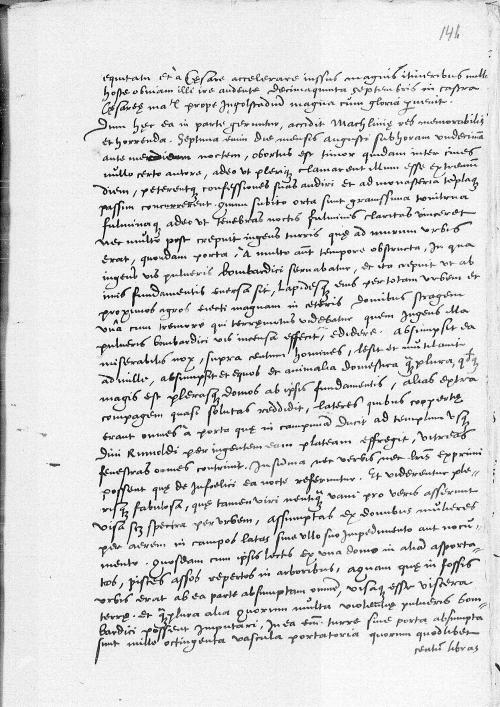 144
equitatu et a Cesare accelerare iussus magnis itineribus nullo
hoste obviam illi ire audente decima quinta septembris in castra
Cesareę ma.tis prope Ingolstadiū magna cum gloria
Dum hęc ea in parte geruntur, accidit Machlinię res memorabilis
et horrenda. Septima enim die mensis augusti sub horam undecimā
ante noctem, obortus est timor quidam inter cives
nullo certo autore, adeo ut pleriq; clamarent illum esse extremum
diem, peterentq; confessiones suas audiri et ad monasteria templaq;
passim concurrerent. quum subito orta sunt gravissima tonitrua
fulminaq; adeo ut tenebras noctis fulminis claritas vinceret
nec multo post crepuit ingens turris quę ad murum urbis
erat, quondam porta, a multo aut tempore obstructa, in qua
ingens vis pulveris bombardici servabatur, et ita crepuit ut ab
imis fundamentis eversa sit, Lapidesq; eius per totam urbem et
proximos agros evecti magnam in cęteris domibus stragem
unā cum tremore qui terręmotus videbatur quem ingens illa
pulveris bombardici vis incensa effecit, edidere. absumpsit ea
miserabilis nox, supra centum homines, lesit et mutilavit
ad mille, absumpsit et equos et animalia domestica quāplura, qđ q;
magis est plerasq; domos ab ipsis fundamentis, alias extra
compagem quasi solutas reddidit, lateres quibus coopertę
erant omnes a porta quę in campiniā ducit ad templum usq;
divi Rumoldi per ingentem eam plateam effregit, vitreas
fenestras omnes contrivit. Insumma, nec verbis nec exprimi
possent quę de infoelici ea nocte referuntur. Et viderentur ple-
riq; fabulosa, quę tamen viri neutiq; vani pro veris asserunt
visa sūt spectra per urbem, assumptas ex domibus mulieres
per aerem in campos latas sine ullo suo impedimento aut nocu-
mento. quosdam cum ipsis lectis ex una domo in aliā asporta-
tos, pisces assos repertos in arboribus, aquam quę in fossis
urbis erat ab ea parte absumptam omnē, visaq; esse viscera
terrę. et quāplura alia quorum multa violentię pulveris bom-
bardici possent imputari, in ea em̄ turre sive porta absumpta
sunt mille octingenta vascula portatoria quorum quodlibet
centū libras